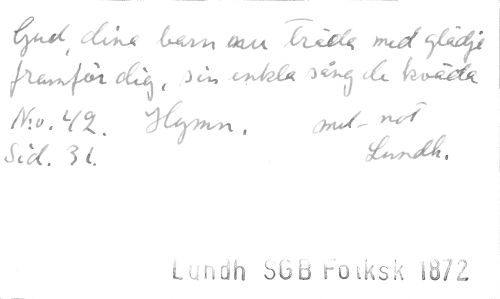 Gud, dina barn nu träda med glädje
framför dig, sin enkla sång de kväda
N:o. 42. Hymn. med not
Sid. 31. Lundh.
Lundh SGB Folksk 1872